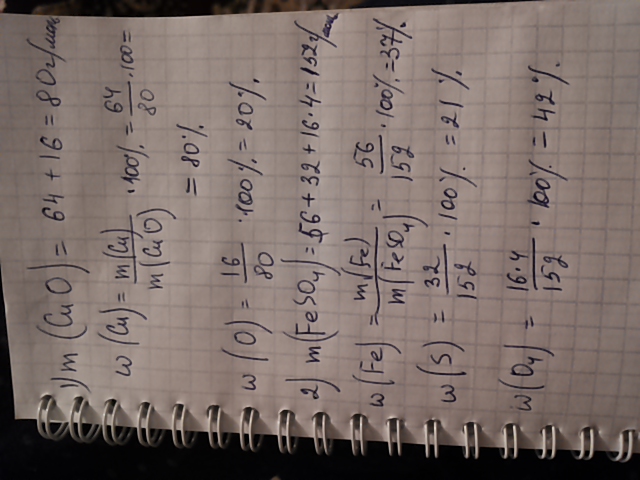 1) m (CuO) = 64 + 16 = 80 г/моль
w (Cu) = m(Cu)/m(CuO) · 100% = 64/80 · 100 =
= 80%
w (O) = 16/80 · 100% = 20%
2) m(FeSO₄) = 56 + 32 + 16·4 = 152 г/моль
w (Fe) = m(Fe)/m(FeSO₄) = 56/152 · 100% = 37%
w (S) = 32/152 · 100% = 21%
w(O₄) = 16·4/152 · 100% = 42%